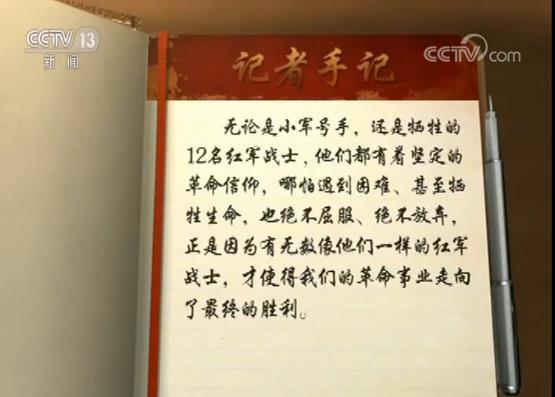 CCTV 13
新闻
CCTV.com
记者手记
无论是小军号手，还是牺牲的
12名红军战士，他们都有着坚定的
革命信仰，哪怕遇到困难、甚至牺
牲生命，也绝不屈服、绝不放弃，
正是因为有无数像他们一样的红军
战士，才使得我们的革命事业走向
了最终的胜利。